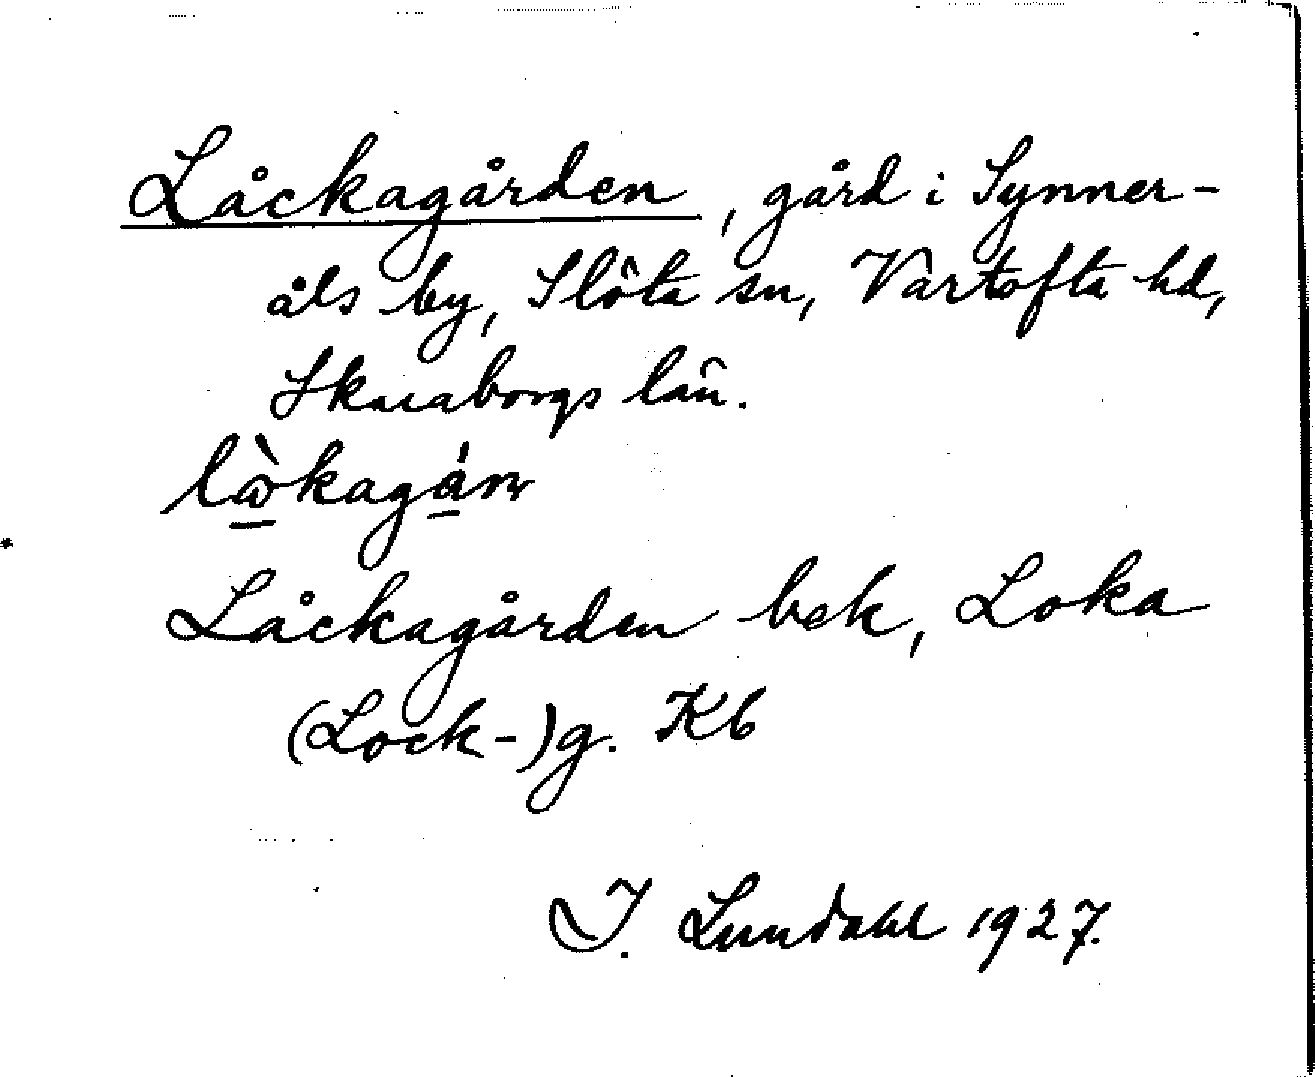 Låckagården, gård i Synner-
åls by, Slöta sn, Vartofta hd,
Skaraborgs län.
Låckagården bek, Loka
(Lock-)g. Kb
I. Lundahl 1927.